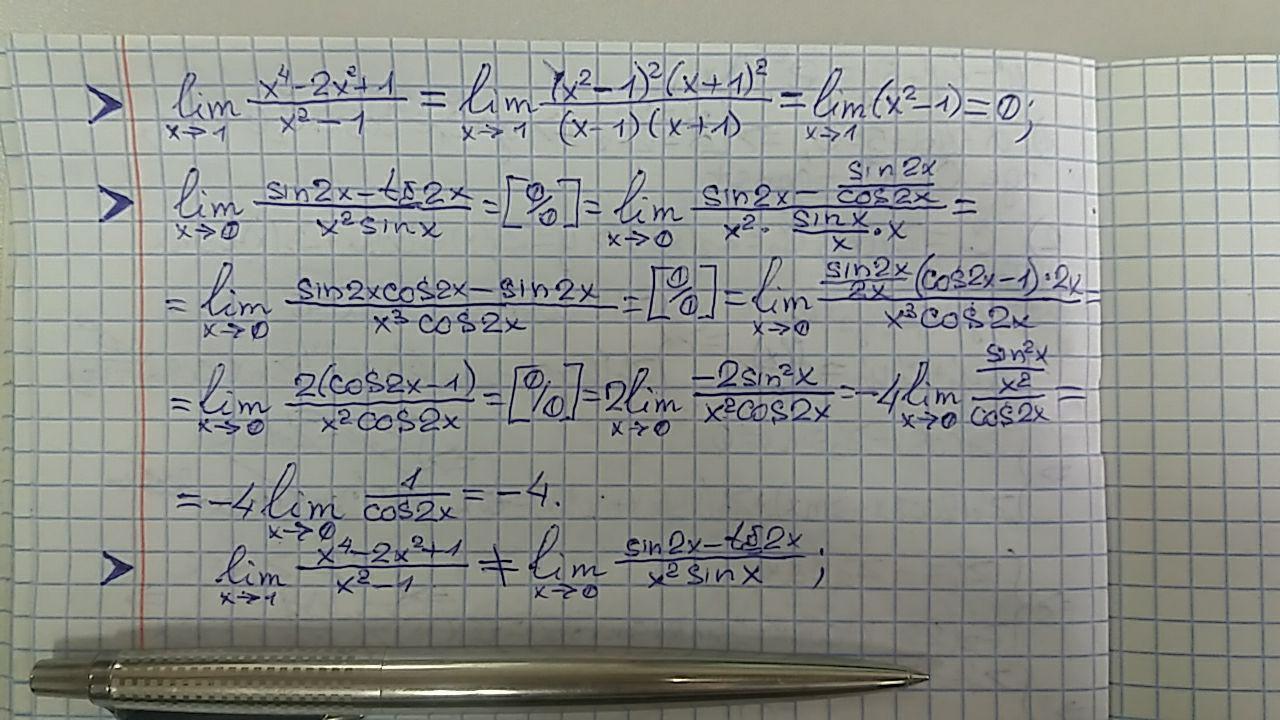 > lim x→1 (x⁴-2x²+1)/(x²-1) = lim x→1 ((x²-1)²(x+1)²)/((x-1)(x+1)) = lim x→1 (x²-1) = 0;
> lim x→0 (sin2x-tg2x)/(x²sinx) = [0/0] = lim x→0 (sin2x - sin2x/cos2x)/(x²·(sinx/x)·x) =
= lim x→0 (sin2xcos2x-sin2x)/(x³cos2x) = [0/0] = lim x→0 ((sin2x/2x)(cos2x-1)·2x)/(x³cos2x) =
= lim x→0 (2(cos2x-1))/(x²cos2x) = [0/0] = 2lim x→0 (-2sin²x)/(x²cos2x) = -4lim x→0 (sin²x/x²)/(cos2x) =
= -4lim x→0 1/(cos2x) = -4.
> lim x→1 (x⁴-2x²+1)/(x²-1) ≠ lim x→0 (sin2x-tg2x)/(x²sinx);